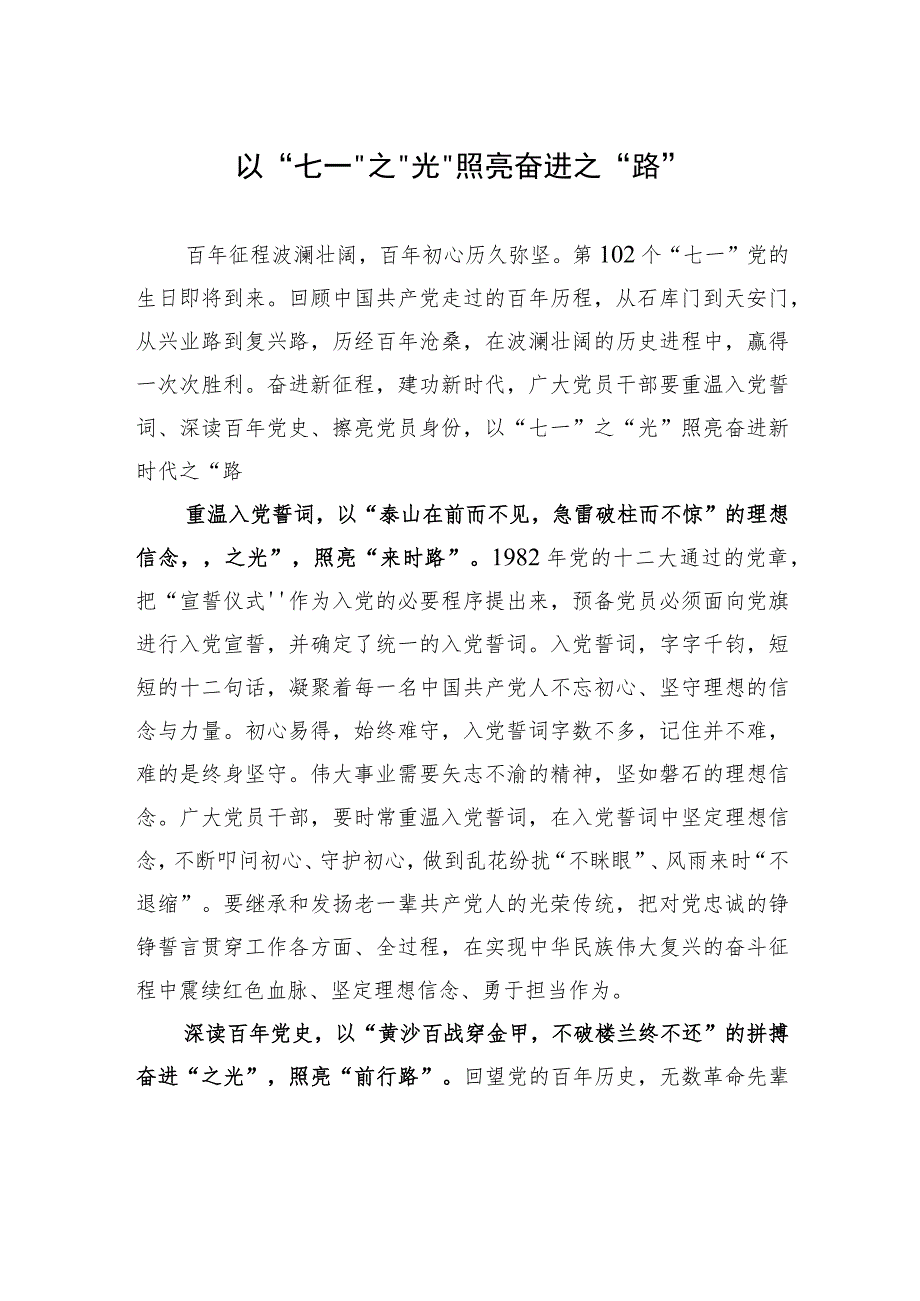 以“七一"之"光"照亮奋进之“路”
百年征程波澜壮阔，百年初心历久弥坚。第102个“七一”党的
生日即将到来。回顾中国共产党走过的百年历程，从石库门到天安门，
从兴业路到复兴路，历经百年沧桑，在波澜壮阔的历史进程中，赢得
一次次胜利。奋进新征程，建功新时代，广大党员干部要重温入党誓
词、深读百年党史、擦亮党员身份，以“七一”之“光”照亮奋进新
时代之“路
重温入党誓词，以“泰山在前而不见，急雷破柱而不惊”的理想
信念，，之光”，照亮“来时路”。1982年党的十二大通过的党章，
把“宣誓仪式''作为入党的必要程序提出来，预备党员必须面向党旗
进行入党宣誓，并确定了统一的入党誓词。入党誓词，字字千钧，短
短的十二句话，凝聚着每一名中国共产党人不忘初心、坚守理想的信
念与力量。初心易得，始终难守，入党誓词字数不多，记住并不难，
难的是终身坚守。伟大事业需要矢志不渝的精神，坚如磐石的理想信
念。广大党员干部，要时常重温入党誓词，在入党誓词中坚定理想信
念，不断叩问初心、守护初心，做到乱花纷扰“不眯眼”、风雨来时“不
退缩”。要继承和发扬老一辈共产党人的光荣传统，把对党忠诚的铮
铮誓言贯穿工作各方面、全过程，在实现中华民族伟大复兴的奋斗征
程中震续红色血脉、坚定理想信念、勇于担当作为。
深读百年党史，以“黄沙百战穿金甲，不破楼兰终不还”的拼搏
奋进“之光”，照亮“前行路”。回望党的百年历史，无数革命先辈